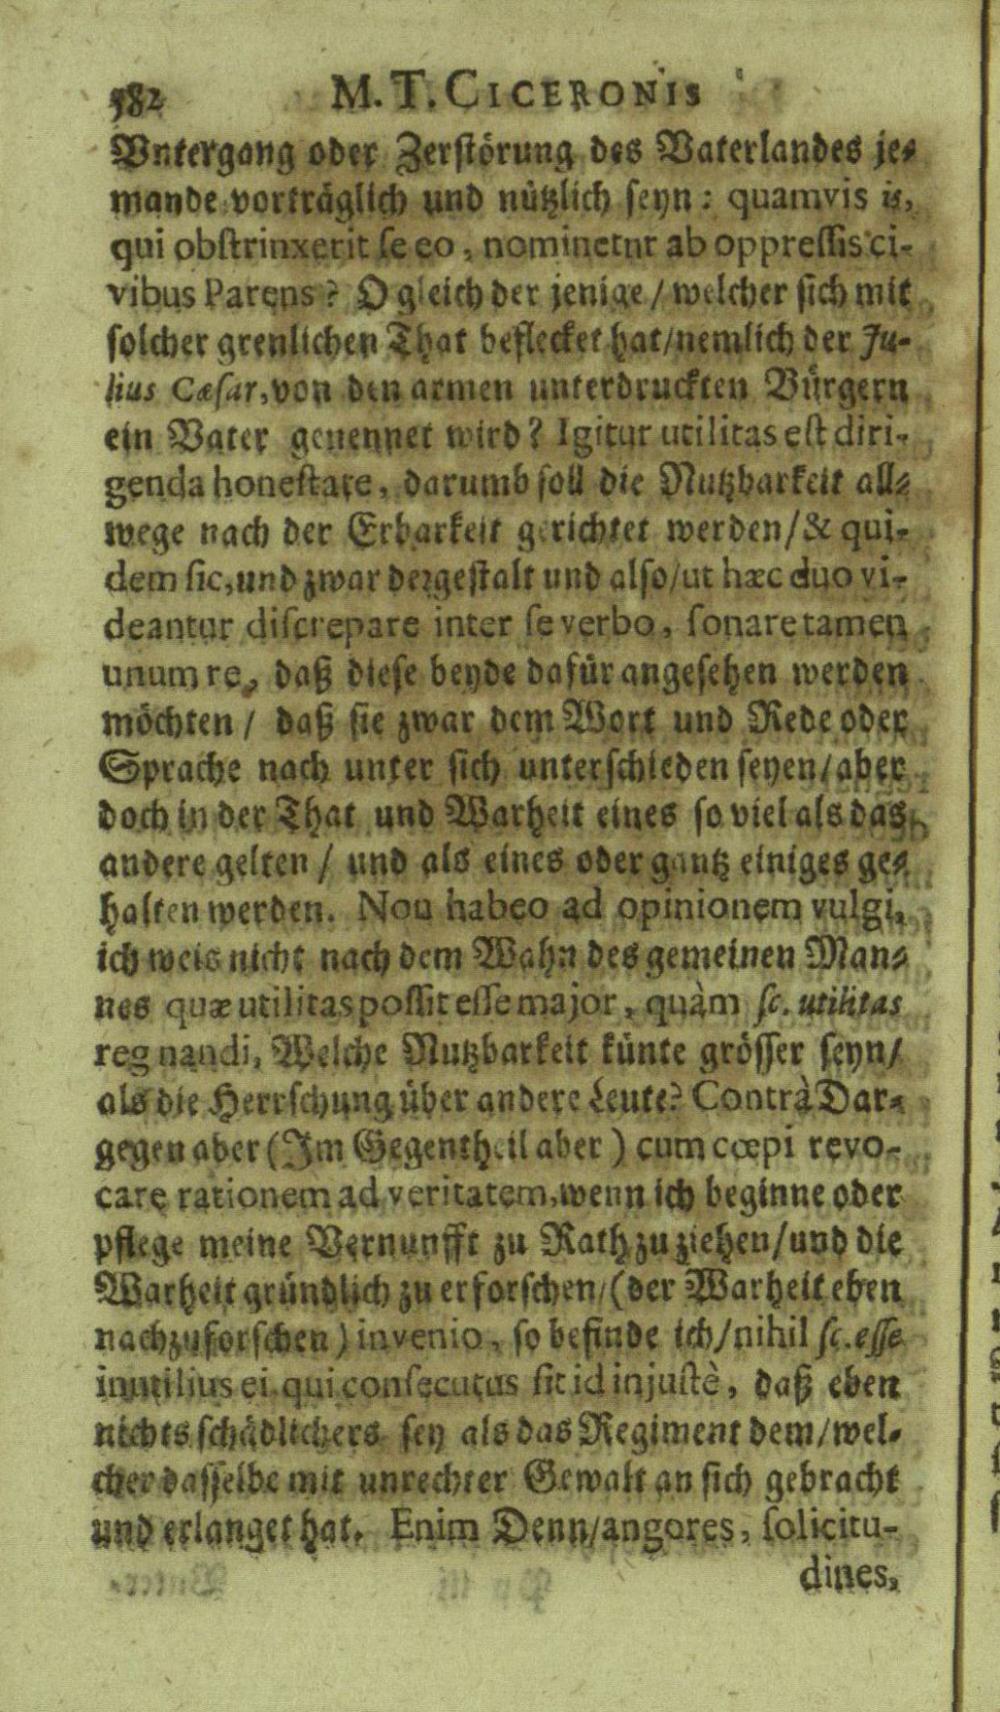 582 M. T. CICERONIS
Vntergang oder Zerstörung des Vaterlandes je-
mande vorträglich und nützlich seyn: quamvis is,
qui obstrinxerit se eo, nominetur ab oppressis ci-
vibus Parens? Ob gleich der jenige / welcher sich mit
solcher greulichen That beflecket hat/nemlich der Ju-
lius Cæsar, von den armen unterdruckten Bürgern
ein Vater genennet wird? Igitur utilitas est diri-
genda honestate, darumb soll die Nutzbarkeit all-
wege nach der Erbarkeit gerichtet werden/& qui-
dem sic, und zwar dergestalt und also/ut hæc duo vi-
deantur discrepare inter se verbo, sonare tamen
unum re, daß diese beyde dafür angesehen werden
möchten / daß sie zwar dem Wort und Rede oder
Sprache nach unter sich unterschieden seyen/aber
doch in der That und Warheit eines so viel als das
andere gelten / und als eines oder gantz einiges ge-
halten werden. Non habeo ad opinionem vulgi,
ich weis nicht nach dem Wahn des gemeinen Man-
nes quæ utilitas possit esse major, quàm sc. utilitas
regnandi, Welche Nutzbarkeit künte grösser seyn/
als die Herrschung über andere Leute? Contrà Dar-
gegen aber (Im Gegentheil aber) cum cœpi revo-
care rationem ad veritatem, wenn ich beginne oder
pflege meine Vernunfft zu Rath zu ziehen/und die
Warheit gründlich zu erforschen/(der Warheit eben
nachzuforschen) invenio, so befinde ich/nihil sc. esse
inutilius ei qui consecutus sit id injustè, daß eben
nichts schädlichers sey als das Regiment dem/wel-
cher dasselbe mit unrechter Gewalt an sich gebracht
und erlanget hat. Enim Denn/angores, solicitu-
dines,